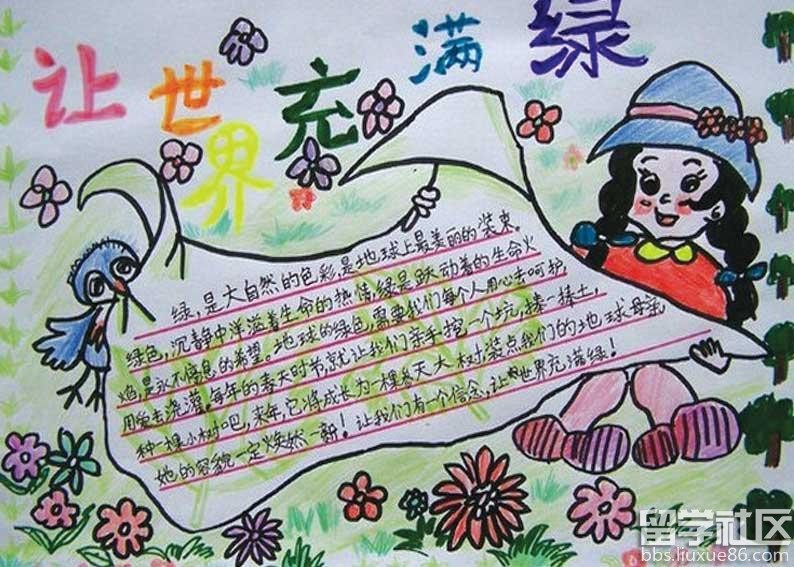 让世界充满绿
绿,是大自然的色彩,是地球上最美丽的装束。
绿色,沉静中洋溢着生命的热情,绿是跃动着的生命火
焰,是永不停息的希望。地球的绿色,需要我们每个人用心去呵护,
用爱去浇灌。每年的春天时节,就让我们亲手挖一个坑,捧一捧土,
种一棵小树吧,来年,它将成长为一棵参天大树,装点我们的地球母亲,
她的容貌一定焕然一新!让我们有一个信念,让世界充满绿!
留学社区
bbs.liuxue86.com